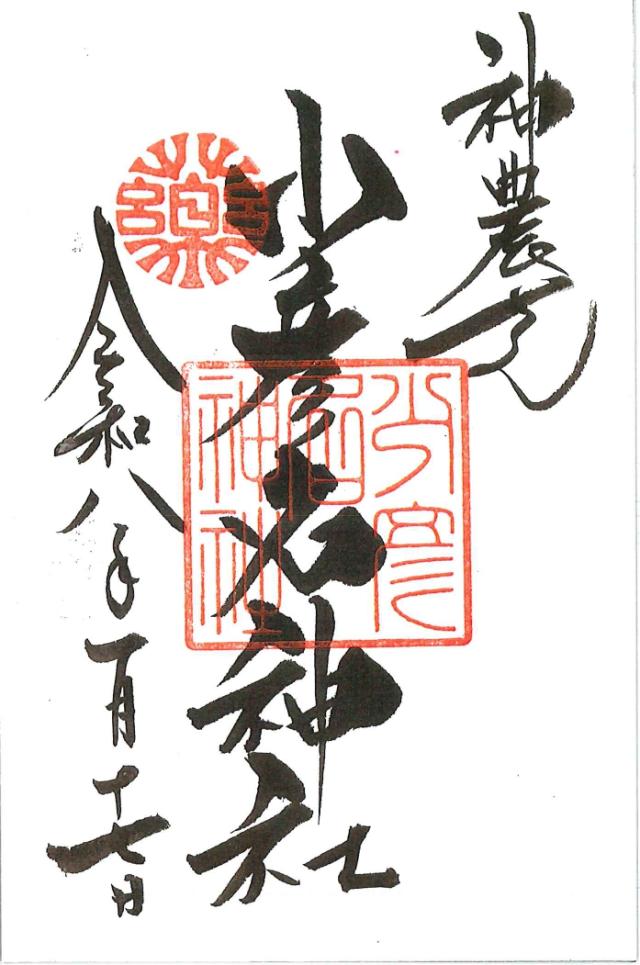 神農
少彦名神社
少彦名神社
藥
令和八年一月十七日